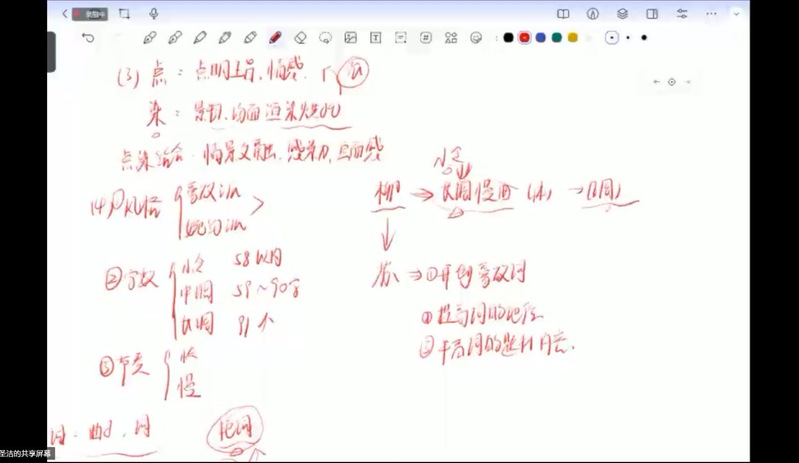 录制中
(3) 点：点明主旨、情感.
染：景物、场面渲染烘托
点染结合. 情景交融，感染力，画面感
(4) 风格 豪放词
婉约词
② 字数 小令 58以内
中调 59～90字
长调 91个
③ 节奏 快
慢
词. 曲 . 词
小令
柳 → 长调慢曲 (体) → 长调
苏 → ①开创豪放词
① 提高词的地位
② 丰富词的题材内容.
圣洁的共享屏幕